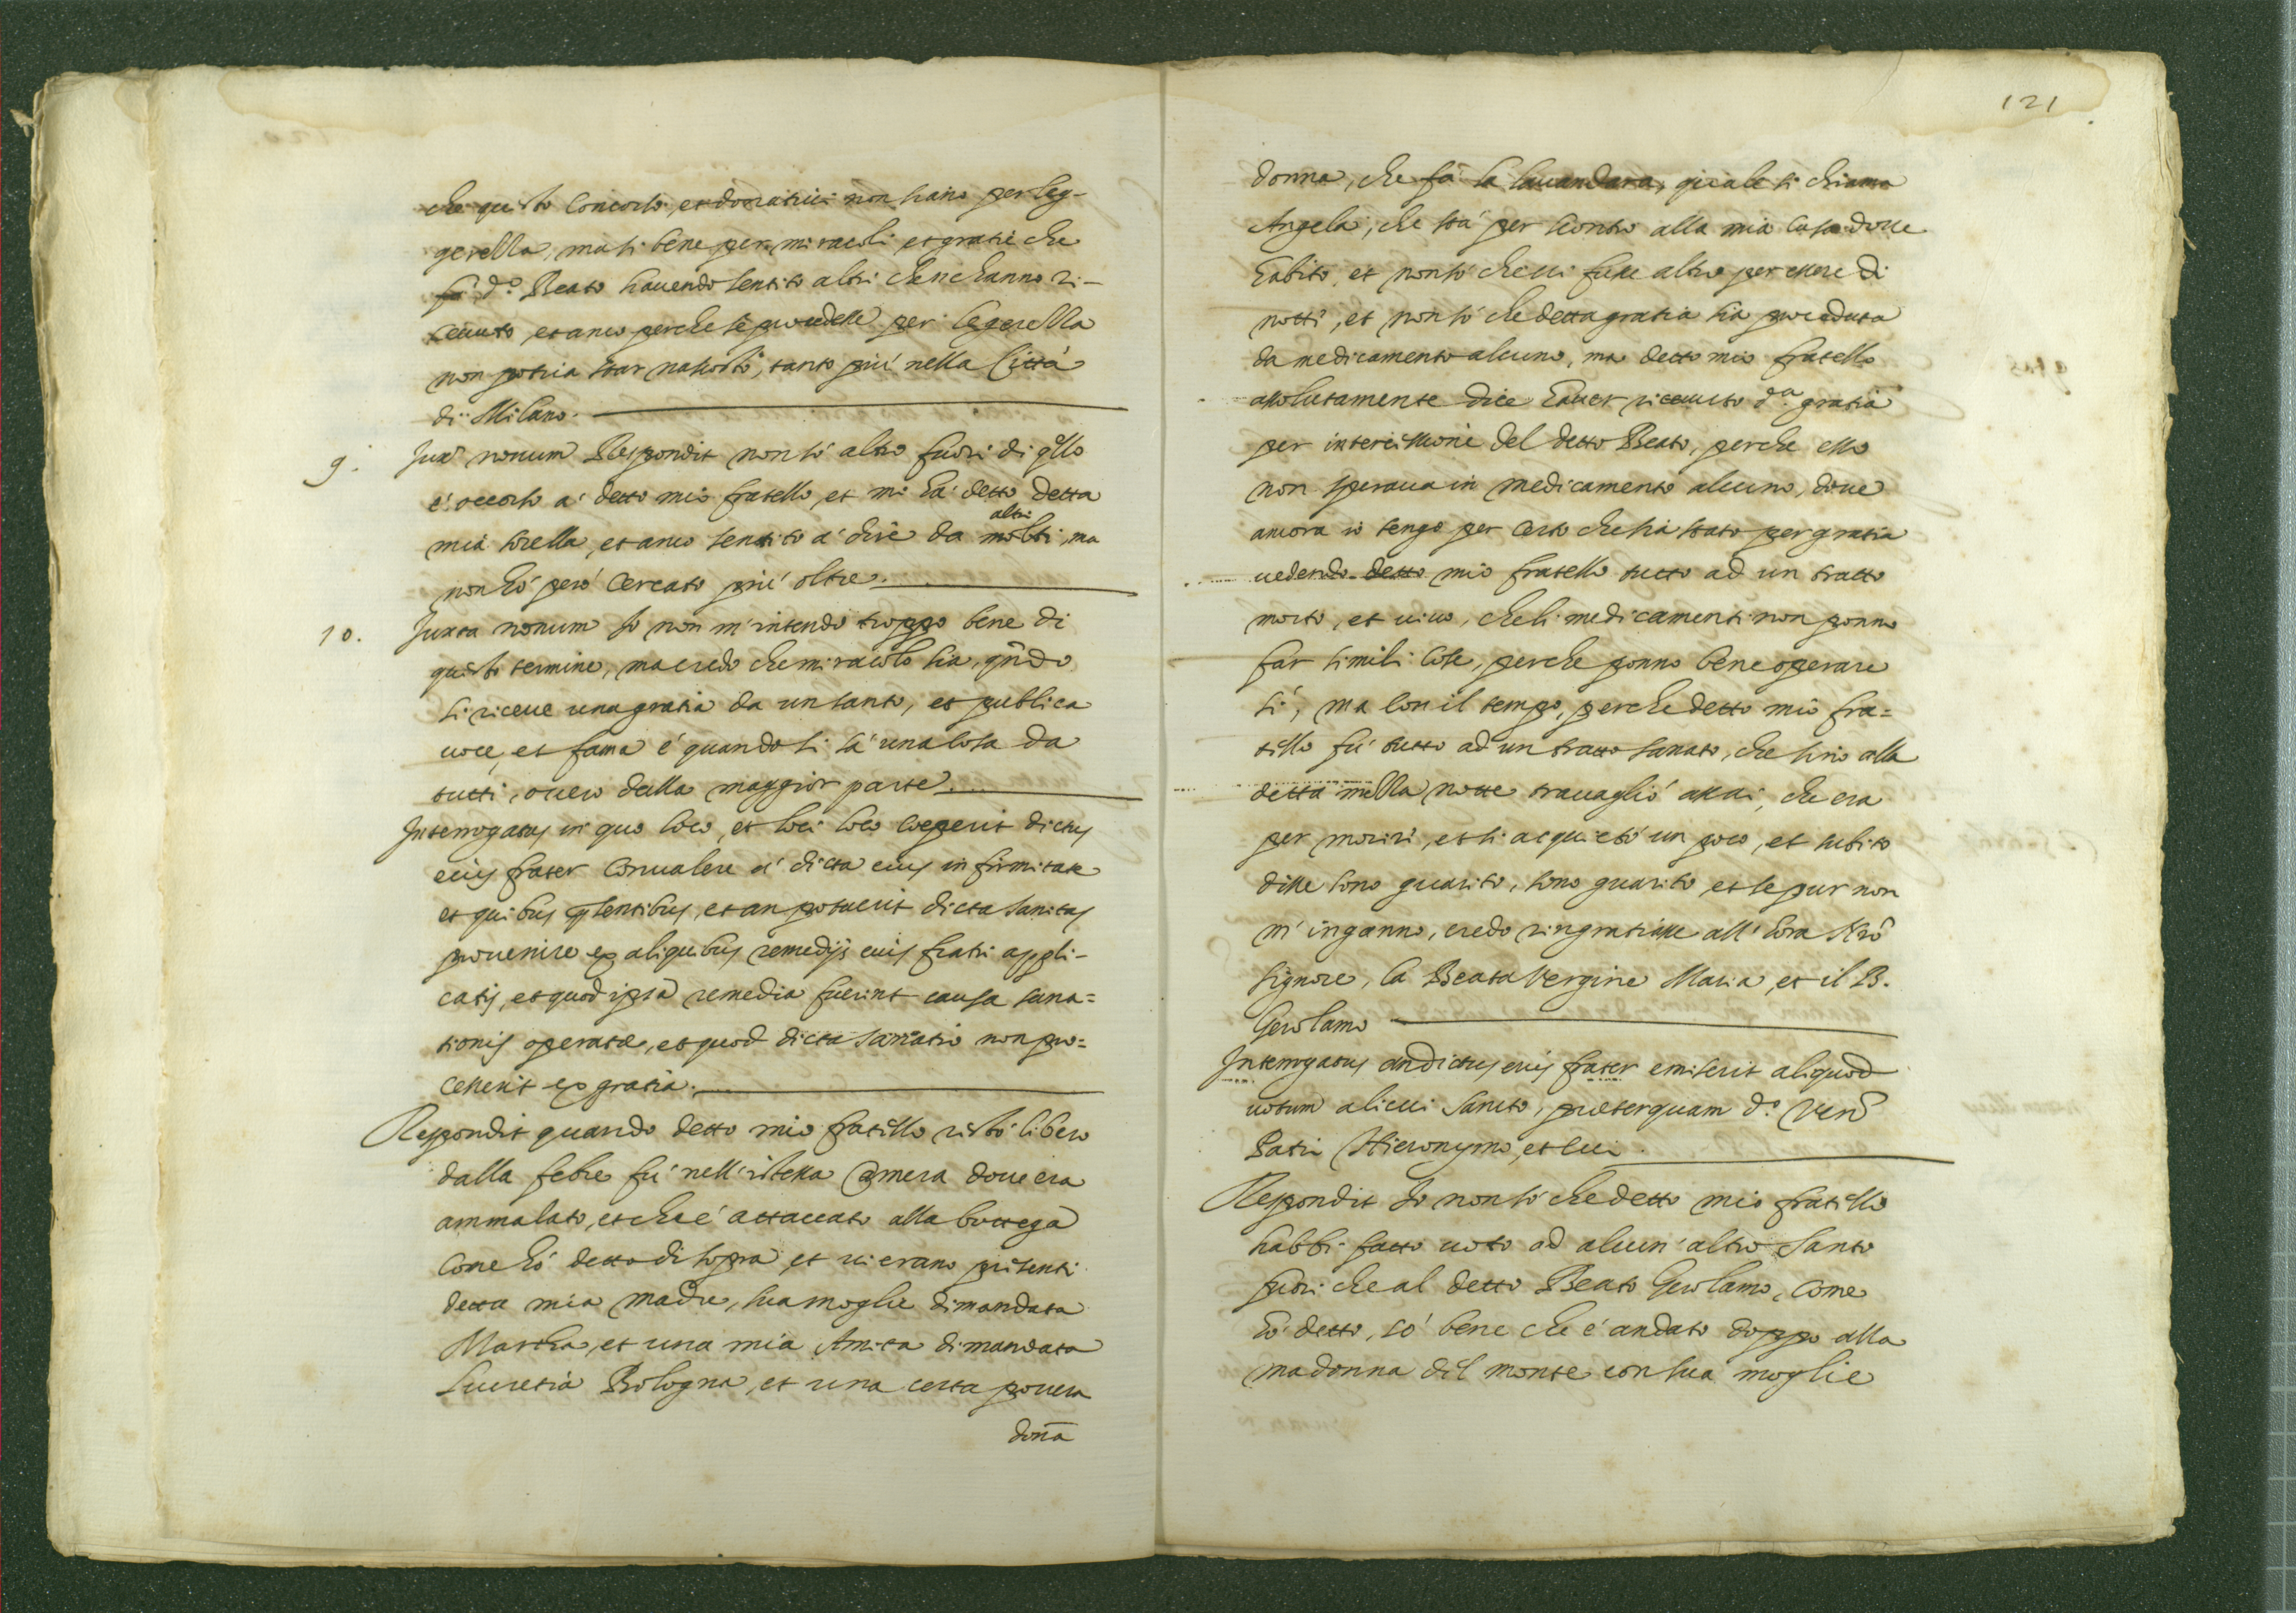 che questo concorso, et donativi non siano per leg-
gerella, ma si bene per miracoli et gratie che
fà d.º Beato havendo sentito altri che n'hanno ri-
ceuuto, et anco perche se procedesse per legerella
non potria star nascosto, tanto più nella Città
di Milano.
9. Juxᵃ nonum Respondit non sò altro fuori di qllo
è occorso à detto mio fratello, et mi hà detto detta
mia sorella, et anco sentito à dire da molti altri, ma
non hò però cercato più oltre.
10. Juxta nonum Io non m'intendo troppo bene di
questo termine, ma credo che miracolo sia, qñdo
si riceue una gratia da un santo, et publica
uoce, et fama è quando si sà una cosa da
tutti, ouero dalla maggior parte.
Interrogatus in quo loco, et loci loco coeperit dictus
eius frater conualere à dicta eius infirmitate
et quibus pñtibus, et an potuerit dicta sanitas
prouenire ex aliquibus remedijs eius fratri appli-
catis, et quod ipsa remedia fuerint causa sana=
tionis operatæ, et quod dicta sanatio non pro=
cesserit ex gratia.
Respondit quando detto mio fratello restò libero
dalla febre fù nell'istessa camera doue era
ammalato, et che è attaccato alla bottega
come hò detto di sopra, et ui erano presenti
detta mia madre, sua moglie dimandata
Martha, et una mia Amita dimandata
Lucretia Bologna, et una certa pouera
doña
121
donna, che fà la lauandara, quale si chiama
Angela, che stà per scontro alla mia casa doue
habito, et non sò che ui fusse altro per essere di
notte, et non sò che detta gratia sia proceduta
da medicamento alcuno, ma detto mio fratello
assolutamente dice hauer riceuuto d.ª gratia
per intercessione del detto Beato, perche esso
non speraua in medicamento alcuno, doue
ancora io tengo per certo che sia stato per gratia
uedendo detto mio fratello tutto ad un tratto
morto, et uiuo, che li medicamenti non ponno
far simili cose, perche ponno bene operare
sì, ma con il tempo, perche detto mio fra=
tello fù tutto ad un tratto sanato, che sino alla
detta mezza notte trauagliò assai, che era
per morire, et si acquietò un poco, et subito
disse sono guarito, sono guarito, et se pur non
m'inganno, credo ringratiasse all'hora Nrõ
Signore, la Beata Vergine Maria, et il B.
Gerolamo
Interrogatus an dictus eius frater emiserit aliquod
uotum alicui Sancto, præterquam d.º Ven.
Patri Hieronymo, et cui.
Respondit Io non sò che detto mio fratello
habbi fatto uoto ad alcun'altro Santo
fuori che al detto Beato Gerolamo, come
hò detto, sò bene che è andato doppo alla
madonna del monte con sua moglie